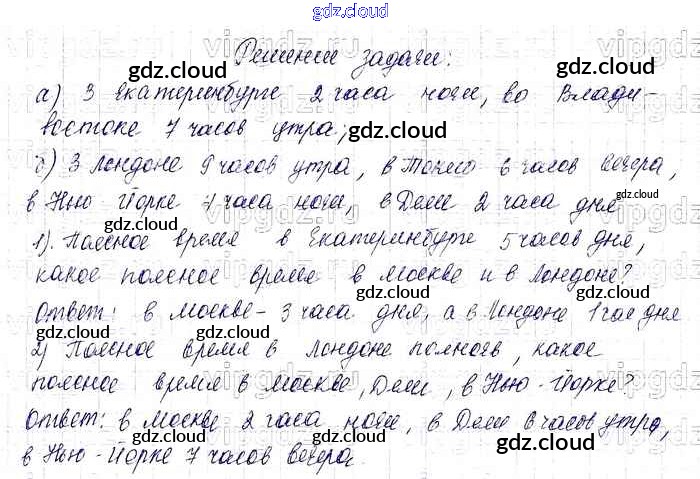 gdz.cloud
Решение задачи:
а) В Екатеринбурге 2 часа ночи, во Влади-
востоке 7 часов утра;
б) В Лондоне 9 часов утра, в Токио 6 часов вечера,
в Нью Йорке 4 часа ночи, в Дели 2 часа дня
1). Поясное время в Екатеринбурге 5 часов дня,
какое поясное время в Москве и в Лондоне?
Ответ: в Москве - 3 часа дня, а в Лондоне 1 час дня
2) Поясное время в Лондоне полночь, какое
поясное время в Москве, Дели, в Нью-Йорке?
Ответ: в Москве 2 часа ночи, в Дели 6 часов утра,
в Нью-Йорке 7 часов вечера.